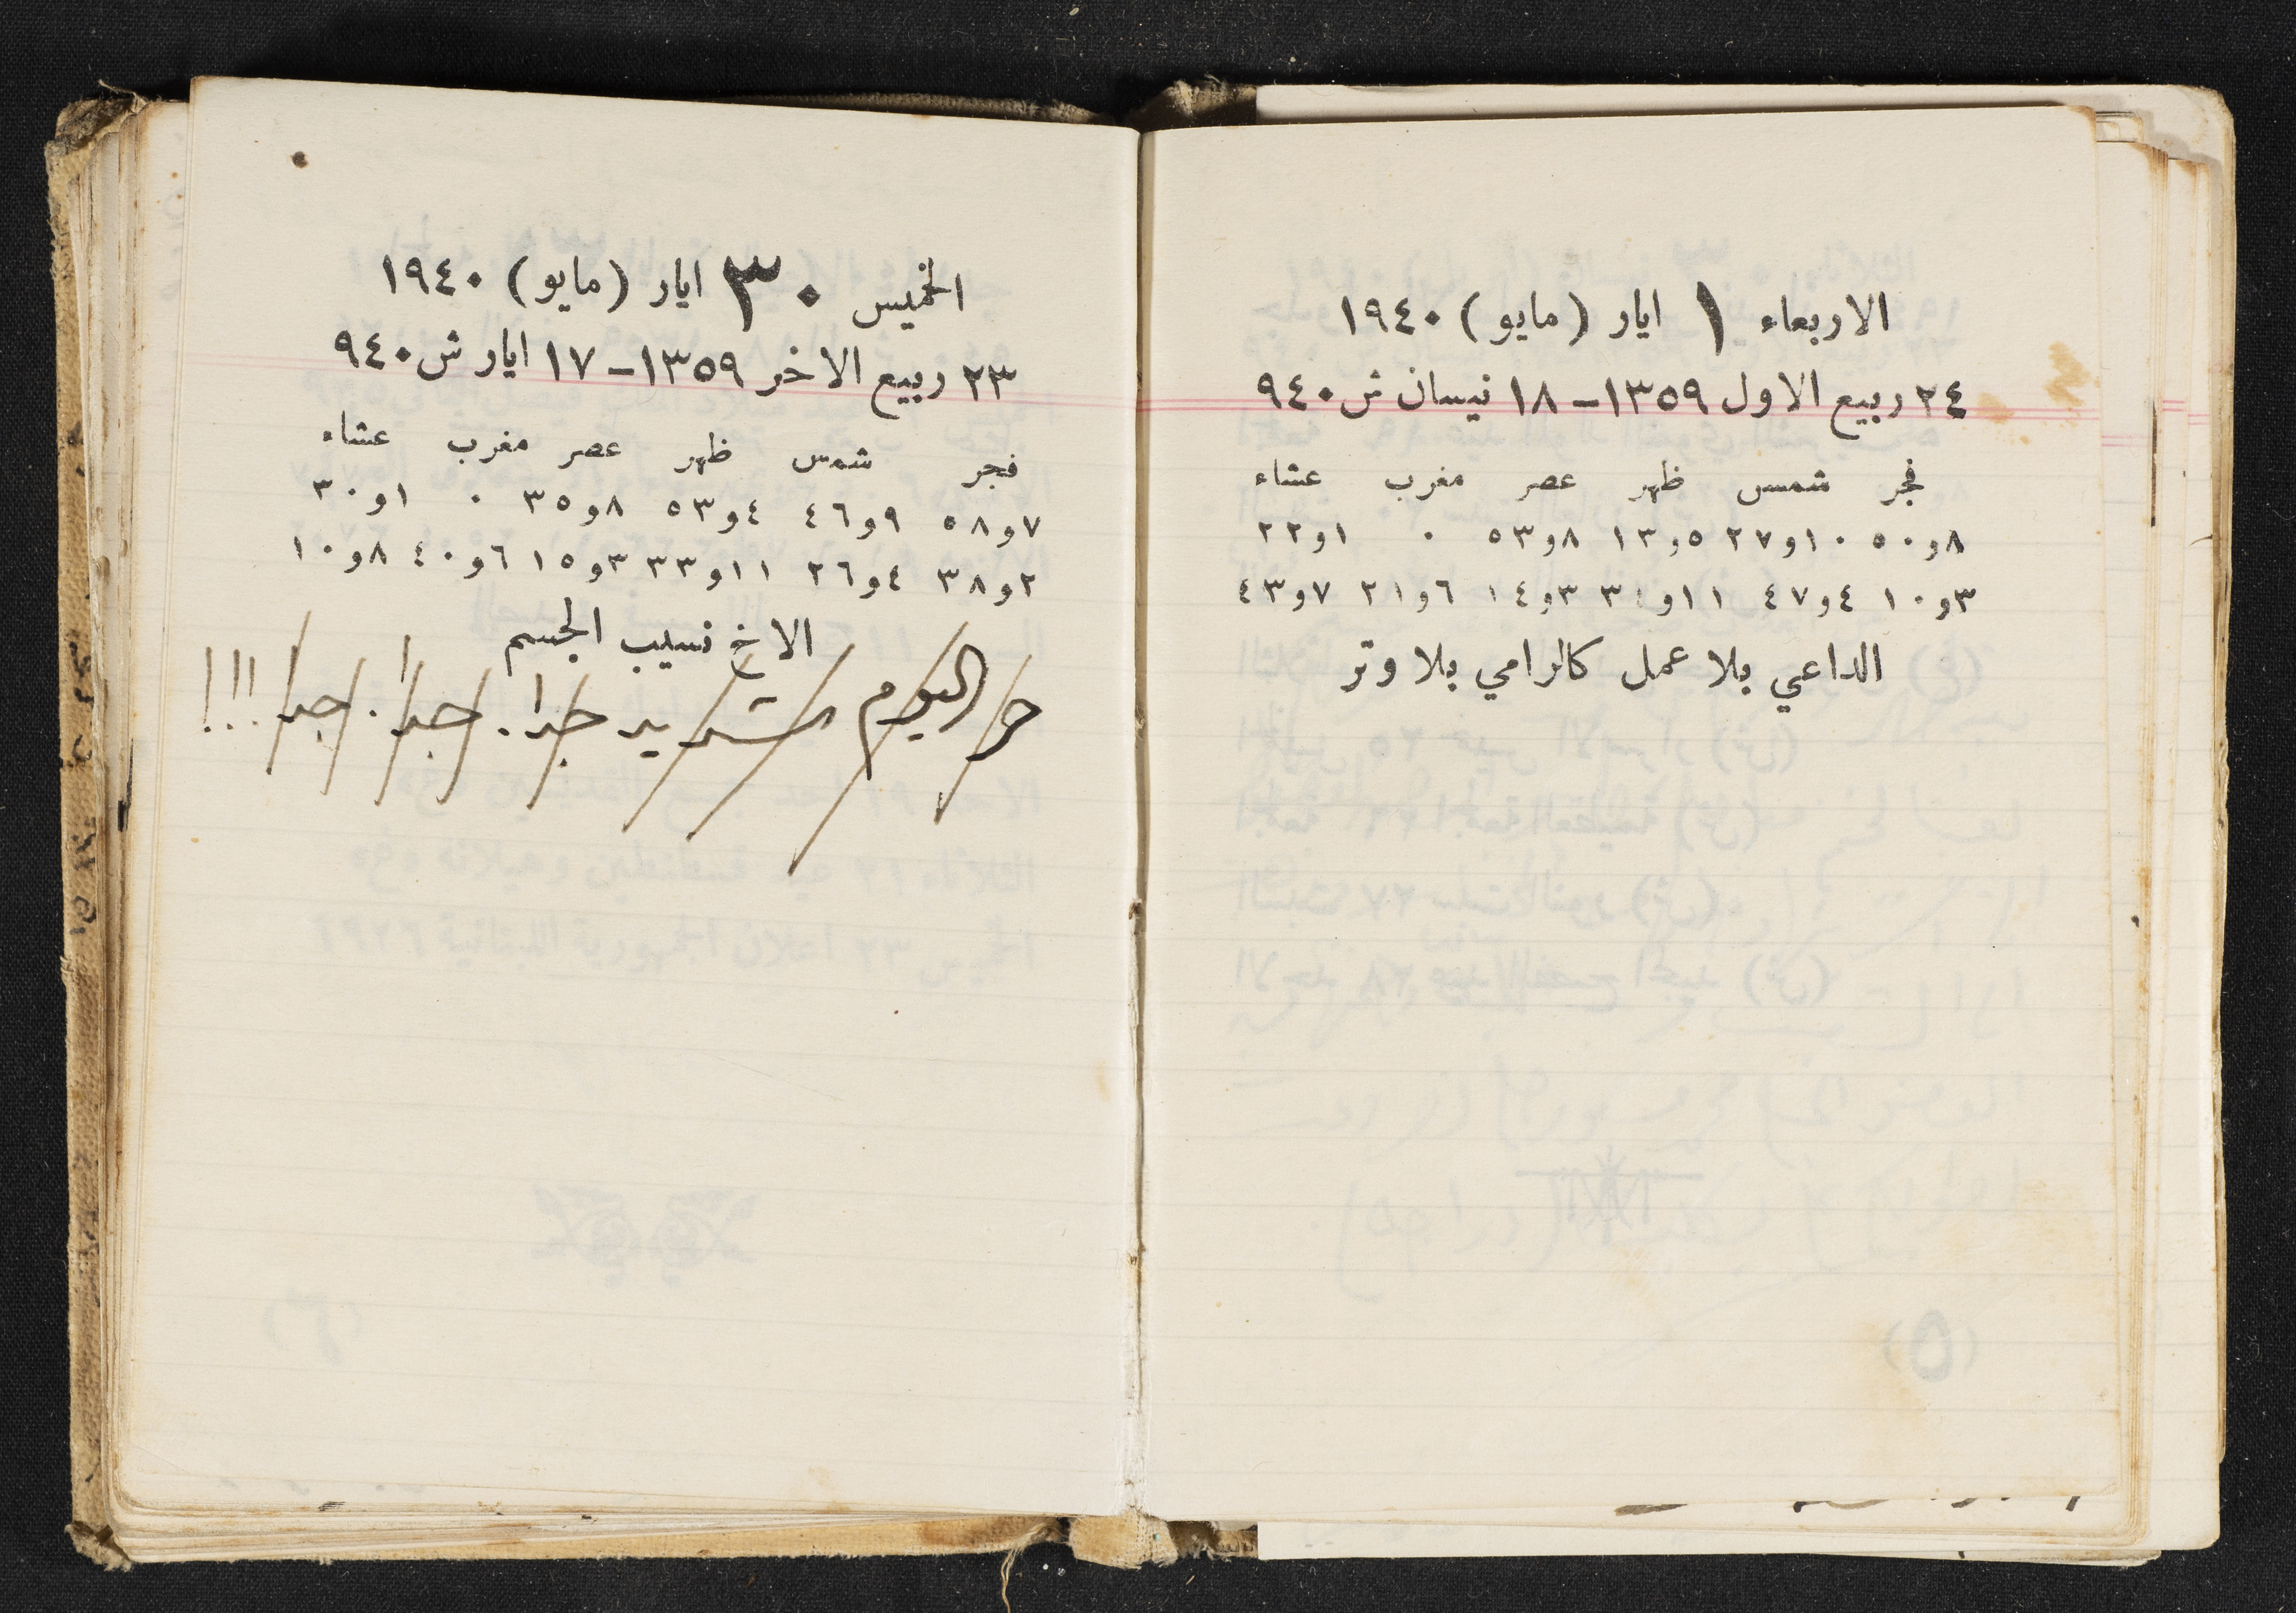 الاربعاء ١ ايار (مايو) ١٩٤٠
٢٤ ربيع الاول ١٣٥٩ – ١٨ نيسان ش ٩٤٠
فجر شمس ظهر عصر مغرب عشاء
٨و٥٠ ١٠و٢٧ ٥و١٣ ٨و٥٣ ٠ ١و٢٢
٣و١٠ ٤و٤٧ ١١و٣ ٣و١٤ ٦و٢١ ٧و٤٣
الداعي بلا عمل كالرامي بلا وتر
(٥)
الخميس ٣٠ ايار (مايو) ١٩٤٠
٢٣ ربيع الاخر ١٣٥٩ – ١٧ ايار ش ٩٤٠
فجر شمس ظهر عصر مغرب عشاء
٧و٥٨ ٩و٤٦ ٤و٥٣ ٨و٣٥ ٠ ١و٣٠
٢و٣٨ ٤و٢٦ ١١و٣٣ ٣و١٥ ٦و٤٠ ٨و١٠
الاخ نسيب الجسم
حر اليوم شديد جدا. جدا. جدا!!!